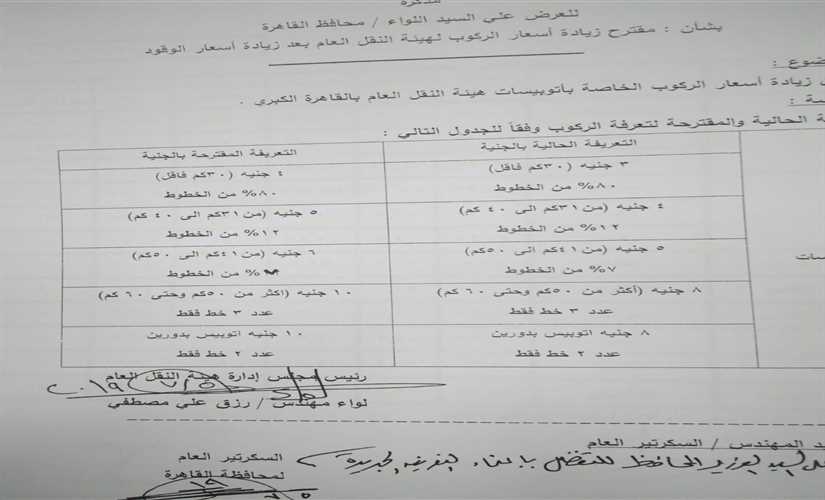 مذكرة
للعرض علي السيد اللواء / محافظ القاهرة
بشأن : مقترح زيادة أسعار الركوب لهيئة النقل العام بعد زيادة أسعار الوقود
ضوع :
زيادة أسعار الركوب الخاصة بأتوبيسات هيئة النقل العام بالقاهرة الكبري .
سة :
ة الحالية والمقترحة لتعرفة الركوب وفقاً للجدول التالي :
التعريفة الحالية بالجنية
التعريفة المقترحة بالجنية
٣ جنيه (٣٠كم فاقل)
٨٠% من الخطوط
٤ جنيه (٣٠كم فاقل)
٨٠% من الخطوط
٤ جنيه (من ٣١كم الى ٤٠ كم)
١٢% من الخطوط
٥ جنيه (من ٣١كم الى ٤٠ كم)
١٢% من الخطوط
٥ جنيه (من ٤١كم الى ٥٠كم)
٧% من الخطوط
٦ جنيه (من ٤١كم الى ٥٠كم)
% من الخطوط
٨ جنيه (أكثر من ٥٠كم وحتى ٦٠ كم)
عدد ٣ خط فقط
١٠ جنيه (اكثر من ٥٠كم وحتى ٦٠ كم)
عدد ٣ خط فقط
٨ جنيه أتوبيس بدورين
عدد ٢ خط فقط
١٠ جنيه اتوبيس بدورين
عدد ٢ خط فقط
سات
رئيس مجلس إدارة هيئة النقل العام
لواء مهندس / رزق علي مصطفي
د المهندس / السكرتير العام
السيد المحافظ للتفضل
السكرتير العام
لمحافظة القاهرة